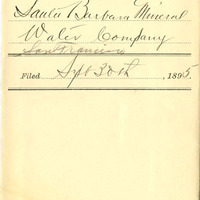 Santa Barbara Mineral
Water Company
San Francisco
Filed Sept 30th, 1895.